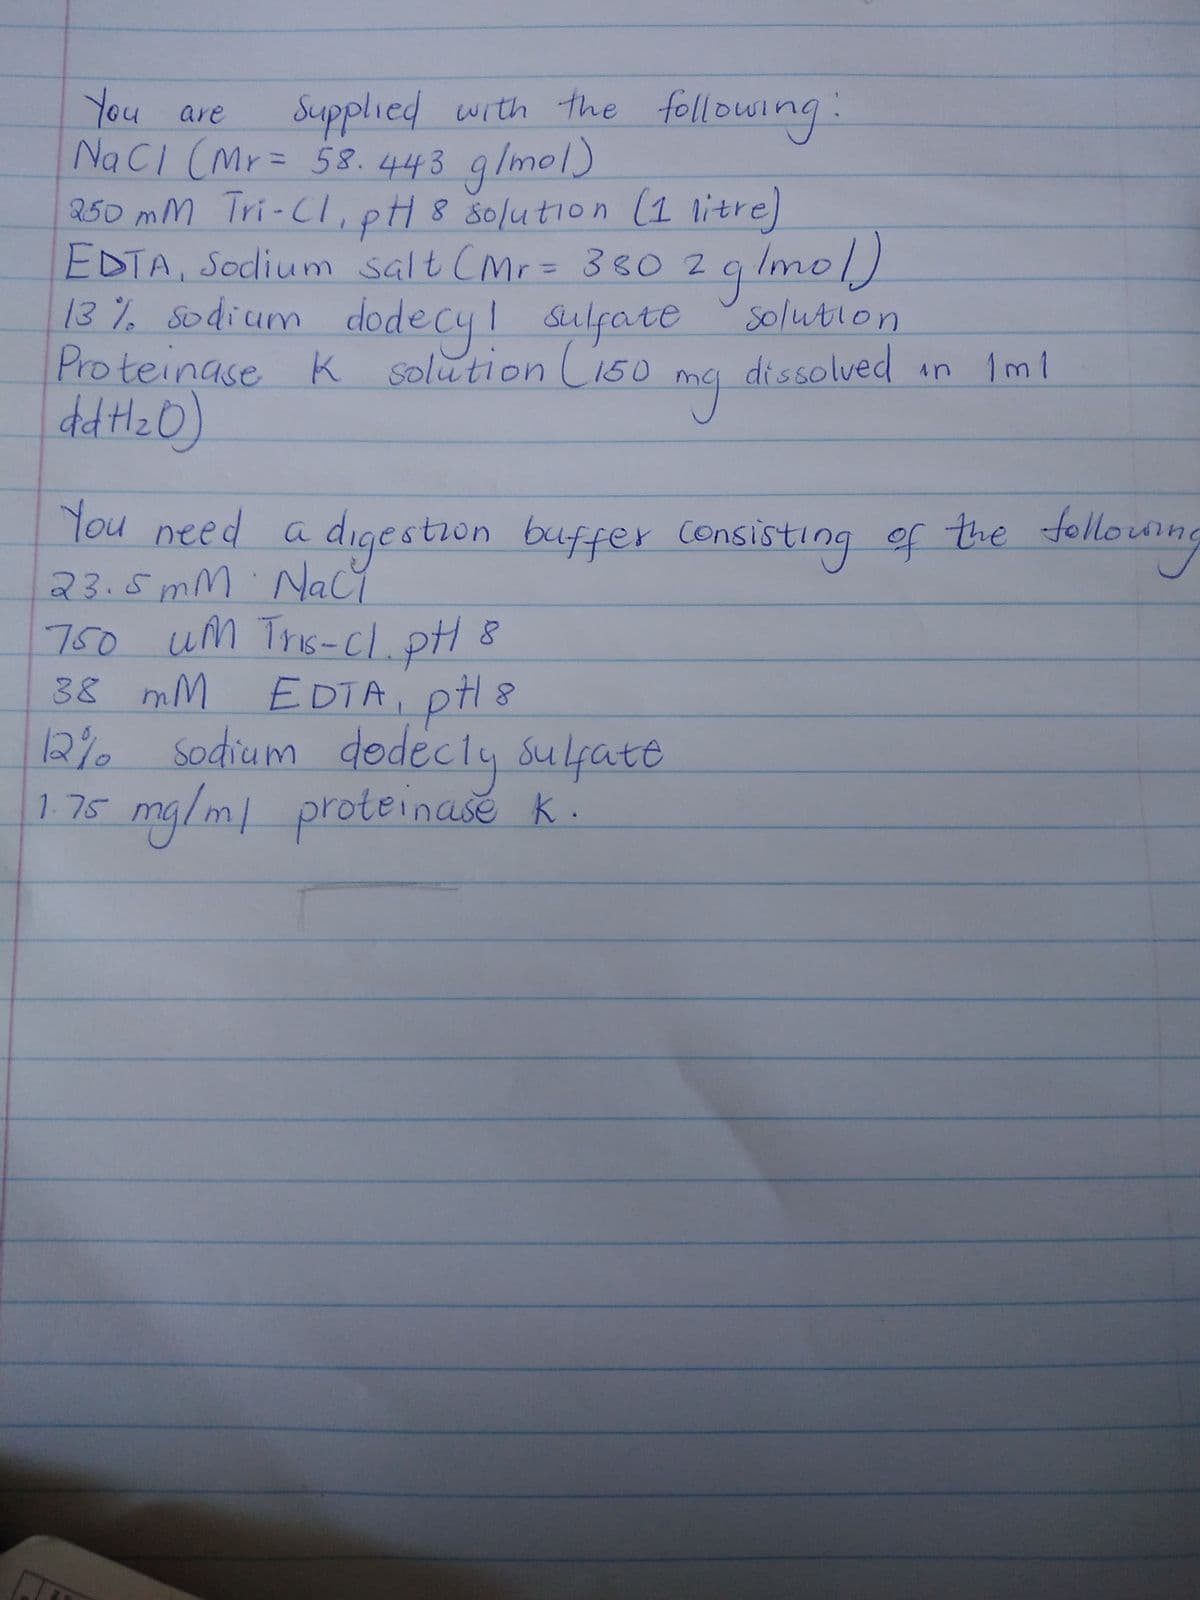 You are Supplied with the following:
NaCl (Mr = 58.443 g/mol)
250 mM Tri-Cl, pH 8 solution (1 litre)
EDTA, Sodium salt (Mr = 380 2 g/mol)
13% sodium dodecyl sulfate solution
Proteinase K solution (150 mg dissolved in 1ml
ddH₂O)
You need a digestion buffer consisting of the following
23.5 mM NaCl
750 uM Tris-Cl. pH 8
38 mM EDTA, pH 8
12% sodium dodecly sulfate
1.75 mg/ml proteinase K.